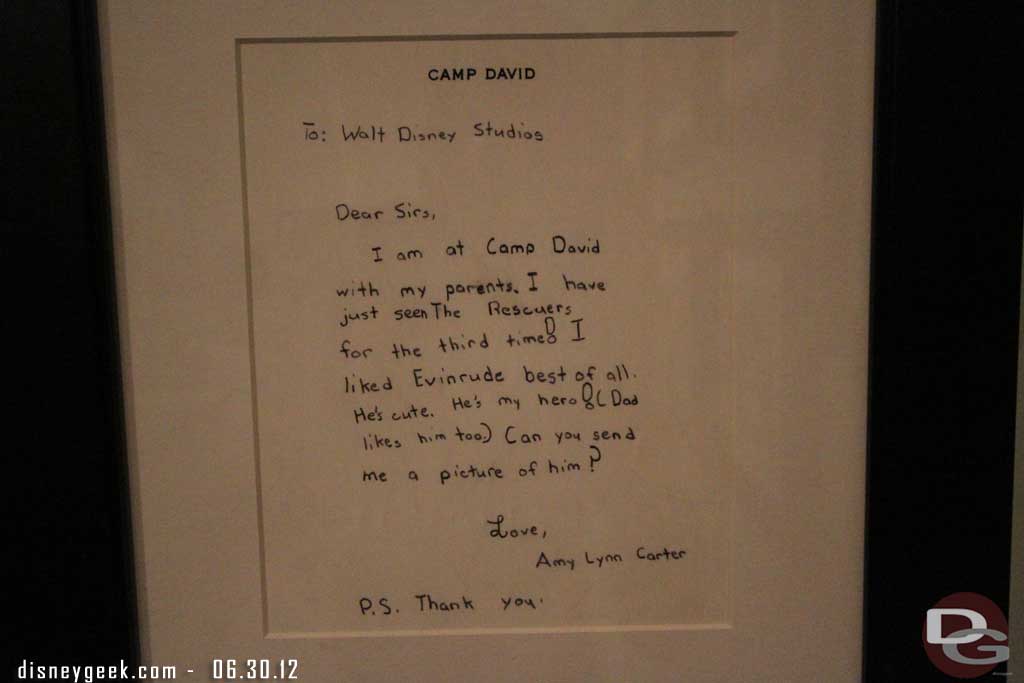 CAMP DAVID
To: Walt Disney Studios
Dear Sirs,
I am at Camp David
with my parents. I have
just seen The Rescuers
for the third time! I
liked Evinrude best of all.
He's cute. He's my hero! (Dad
likes him too.) Can you send
me a picture of him?
Love,
Amy Lynn Carter
P.S. Thank you.
disneygeek.com - 06.30.12
DG